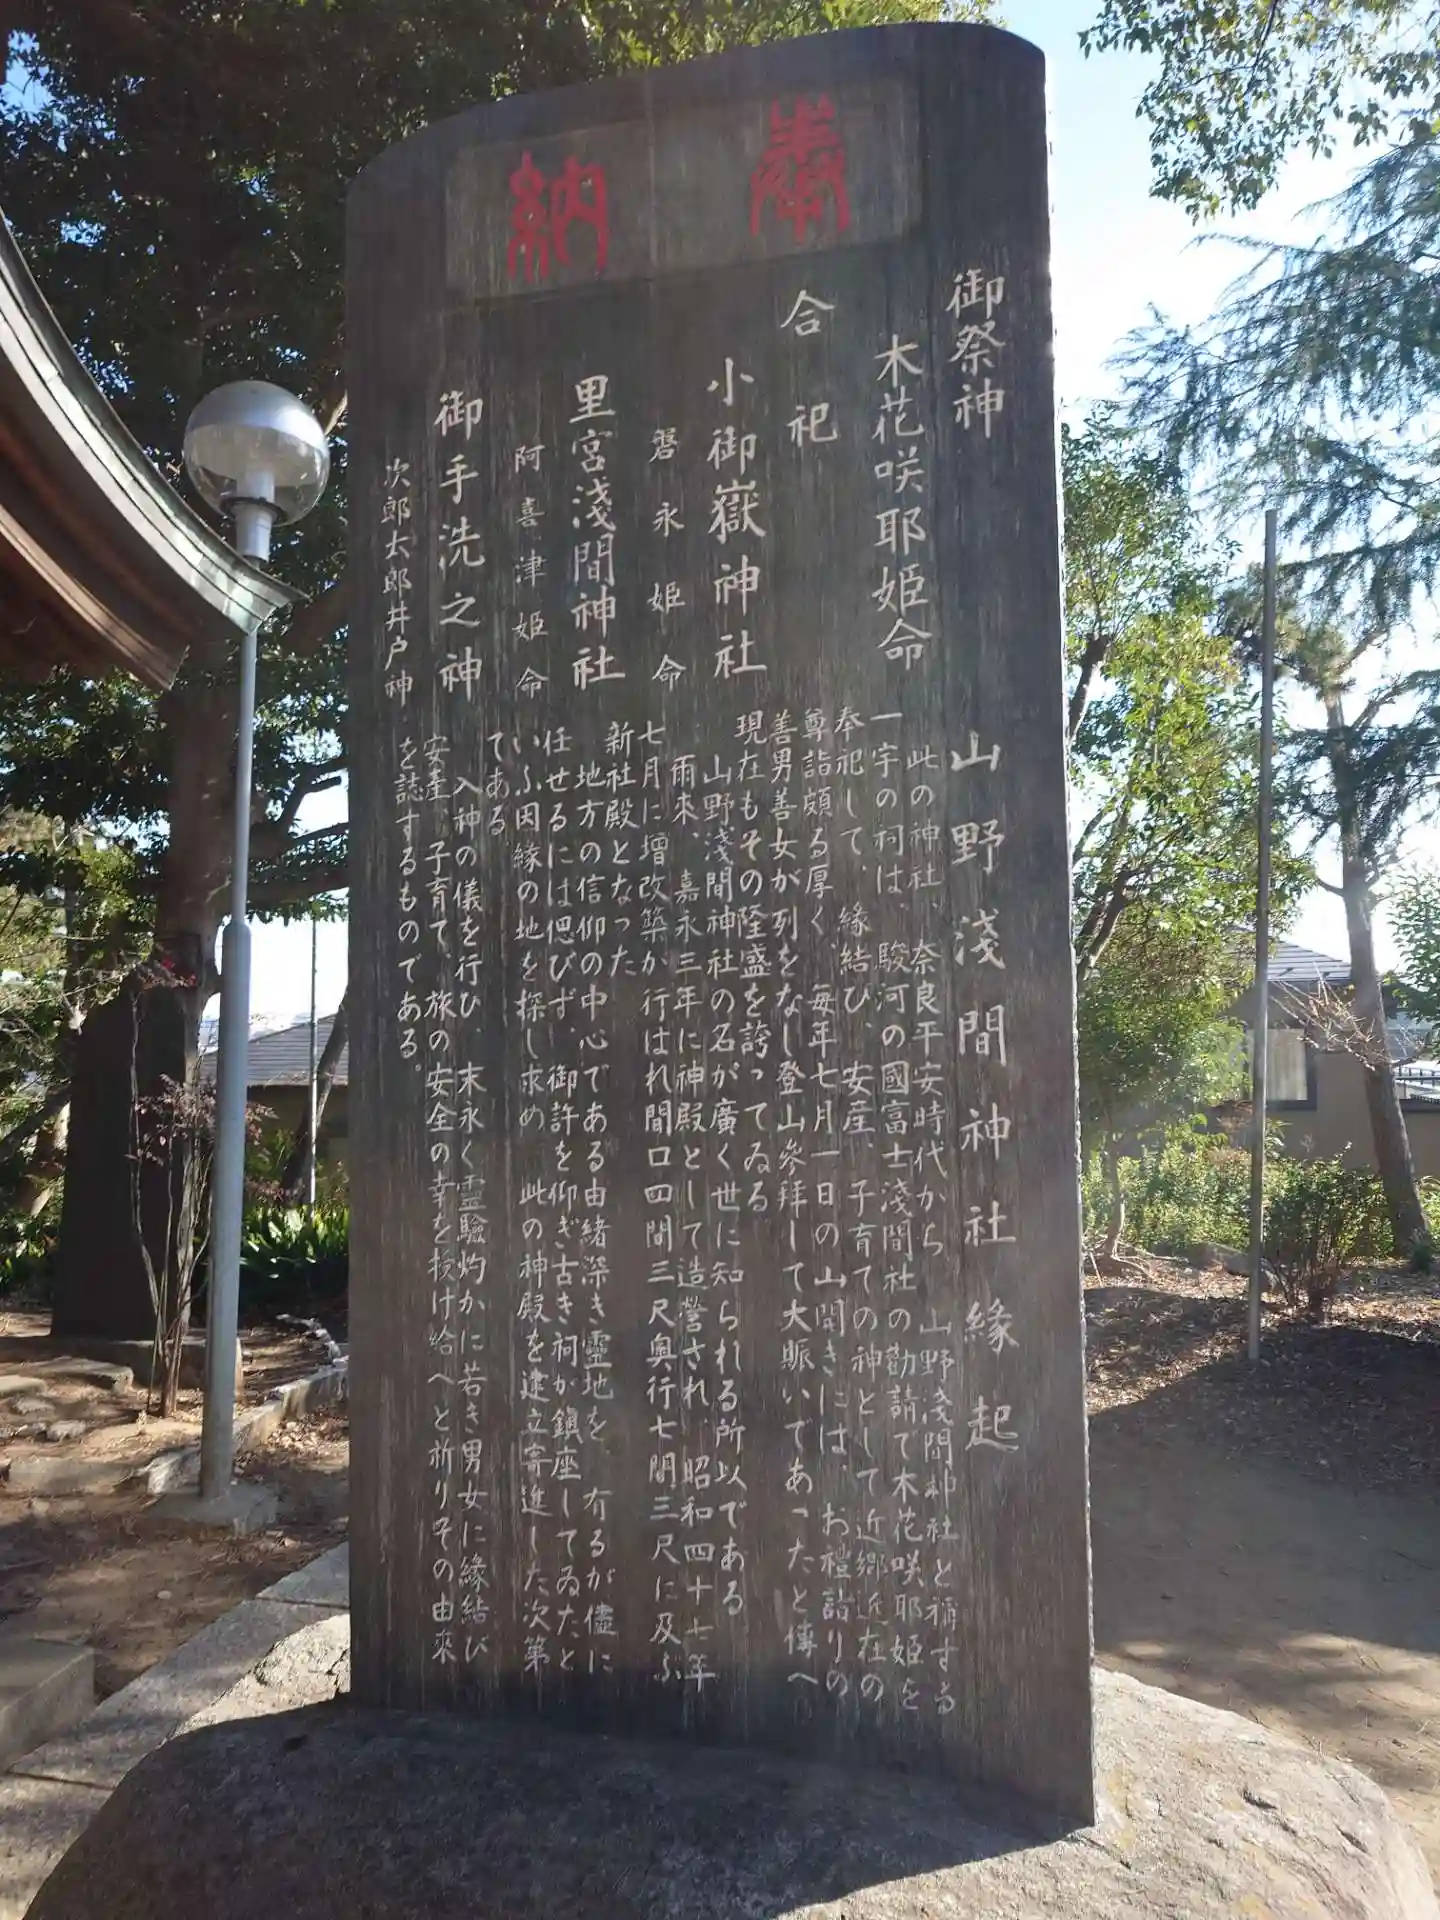 奉納
御祭神
木花咲耶姫命
合祀
小御嶽神社
磐永姫命
里宮淺間神社
阿喜津姫命
御手洗之神
次郎太郎井戸神
山野淺間神社緣起
此の神社、奈良平安時代から、山野淺間神社と稱する
一宇の祠は、駿河の國富士淺間社の勸請で木花咲耶姫を
奉祀して、緣結び、安産、子育ての神として近郷近在の
尊詣頗る厚く、毎年七月一日の山開きには、お禮詣りの
善男善女が列をなし登山參拝して大賑いであったと傳へ
現在もその隆盛を誇ってゐる
山野淺間神社の名が廣く世に知られる所以である
雨来、嘉永三年に神殿として造營され、昭和四十七年
七月に増改築が行はれ間口四間三尺奥行七間三尺に及ぶ
新社殿となった
地方の信仰の中心である由緒深き靈地を、有るが儘に
任せるには偲びず、御許を仰ぎ古き祠が鎮座してゐたと
いふ因緣の地を探し求め、此の神殿を建立寄進した次第
である
入神の儀を行ひ、末永く霊驗灼かに若き男女に緣結び
安産、子育て、旅の安全の幸を授け給へと祈りその由来
を誌するものである。